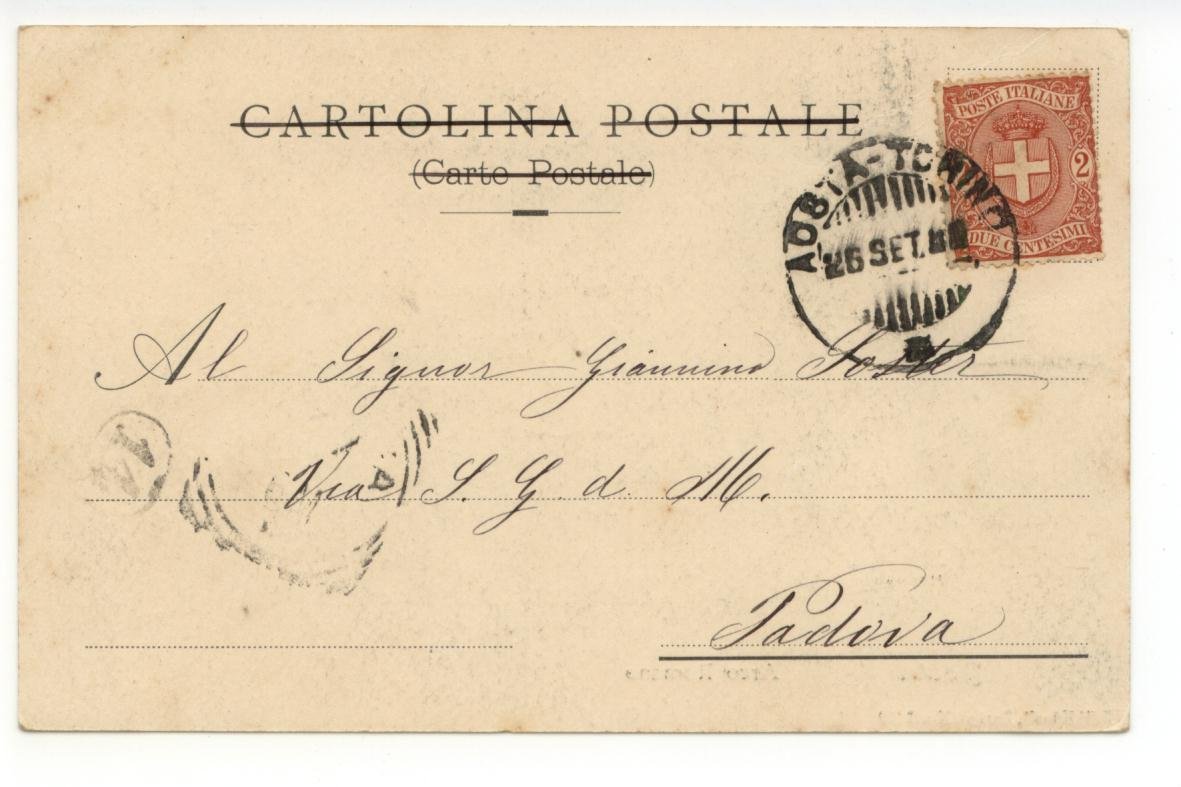 CARTOLINA POSTALE
(Carte Postale)
POSTE ITALIANE
2
DUE CENTESIMI
AOSTA-TORINO
26 SET.
Al Signor Giannino
Via S. G. d. M.
Padova
1